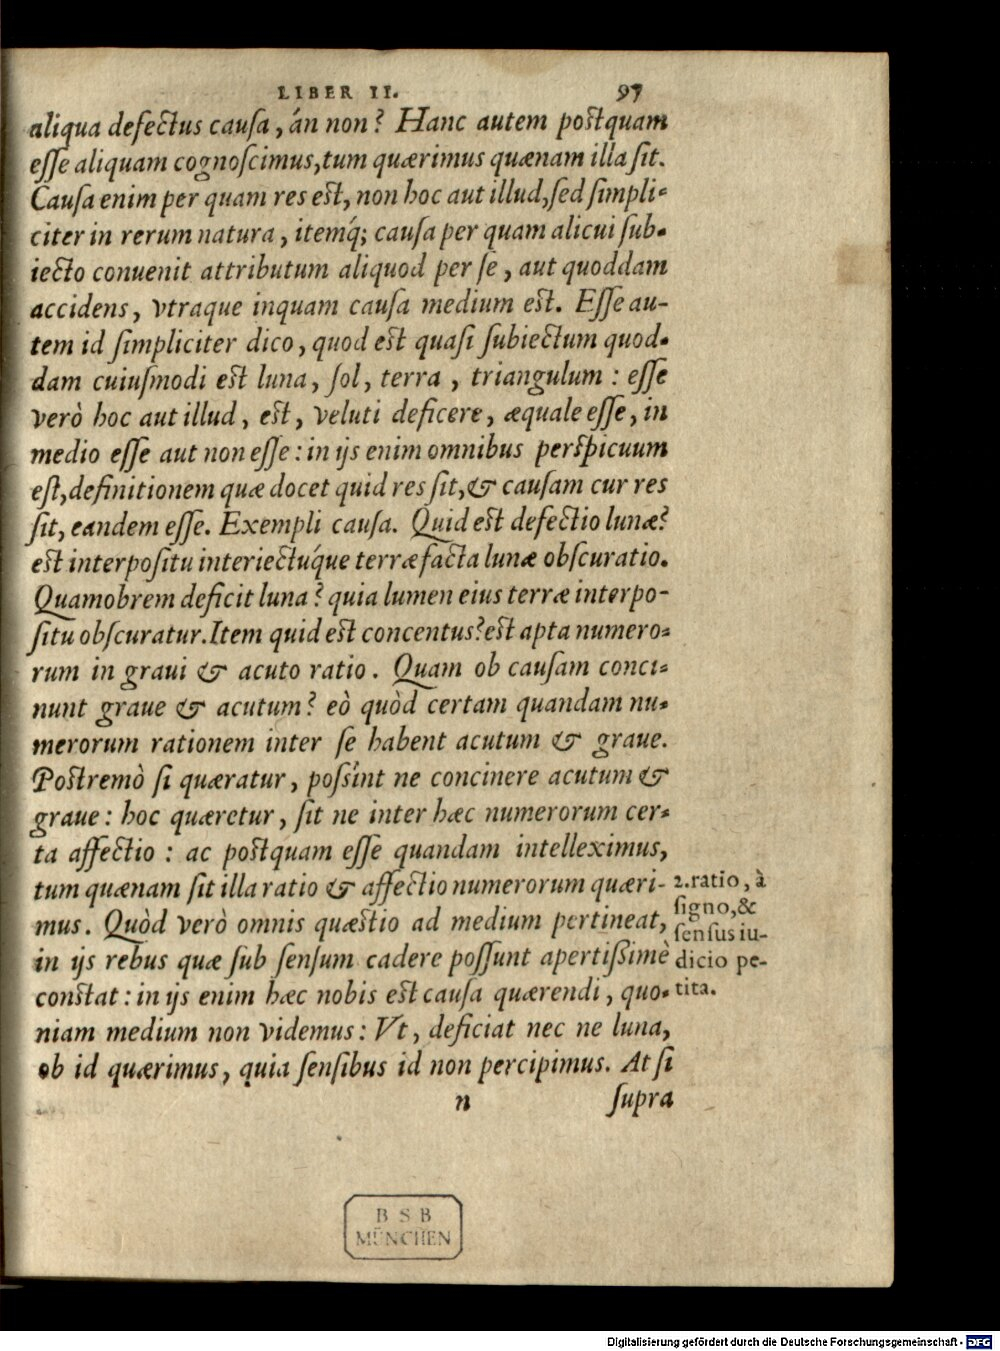 LIBER II. 97
aliqua defectus causſa, án non? Hanc autem postquam
eſſe aliquam cognoſcimus, tum quærimus quænam illa ſit.
Cauſa enim per quam res est, non hoc aut illud, ſed ſimpli-
citer in rerum natura, itemq́; cauſa per quam alicui ſub-
iecto conuenit attributum aliquod per ſe, aut quoddam
accidens, vtraque inquam cauſa medium est. Eſſe au-
tem id ſimpliciter dico, quod est quaſi ſubiectum quod-
dam cuiuſmodi est luna, ſol, terra, triangulum: eſſe
verò hoc aut illud, est, veluti deficere, æquale eſſe, in
medio eſſe aut non eſſe: in ijs enim omnibus perspicuum
eſt, definitionem quæ docet quid res ſit, & cauſam cur res
ſit, eandem eſſe. Exempli cauſa. Quid est defectio lunæ?
est interpoſitu interiectúque terræ facta lunæ obſcuratio.
Quamobrem deficit luna? quia lumen eius terræ interpo-
ſitu obſcuratur. Item quid est concentus? est apta numero-
rum in graui & acuto ratio. Quam ob cauſam conci-
nunt graue & acutum? eò quòd certam quandam nu-
merorum rationem inter ſe habent acutum & graue.
Postremò ſi quæratur, poſſint ne concinere acutum &
graue: hoc quæretur, ſit ne inter hæc numerorum cer-
ta affectio: ac postquam eſſe quandam intelleximus,
tum quænam ſit illa ratio & affectio numerorum quæri-
mus. Quòd verò omnis quæstio ad medium pertineat,
in ijs rebus quæ ſub ſenſum cadere poſſunt apertißimè
constat: in ijs enim hæc nobis est cauſa quærendi, quo-
niam medium non videmus: Vt, deficiat nec ne luna,
ob id quærimus, quia ſenſibus id non percipimus. At ſi
n ſupra
2. ratio, à
ſigno, &
ſenſus iu-
dicio pe-
tita.
BSB
MÜNCHEN
Digitalisierung gefördert durch die Deutsche Forschungsgemeinschaft - DFG